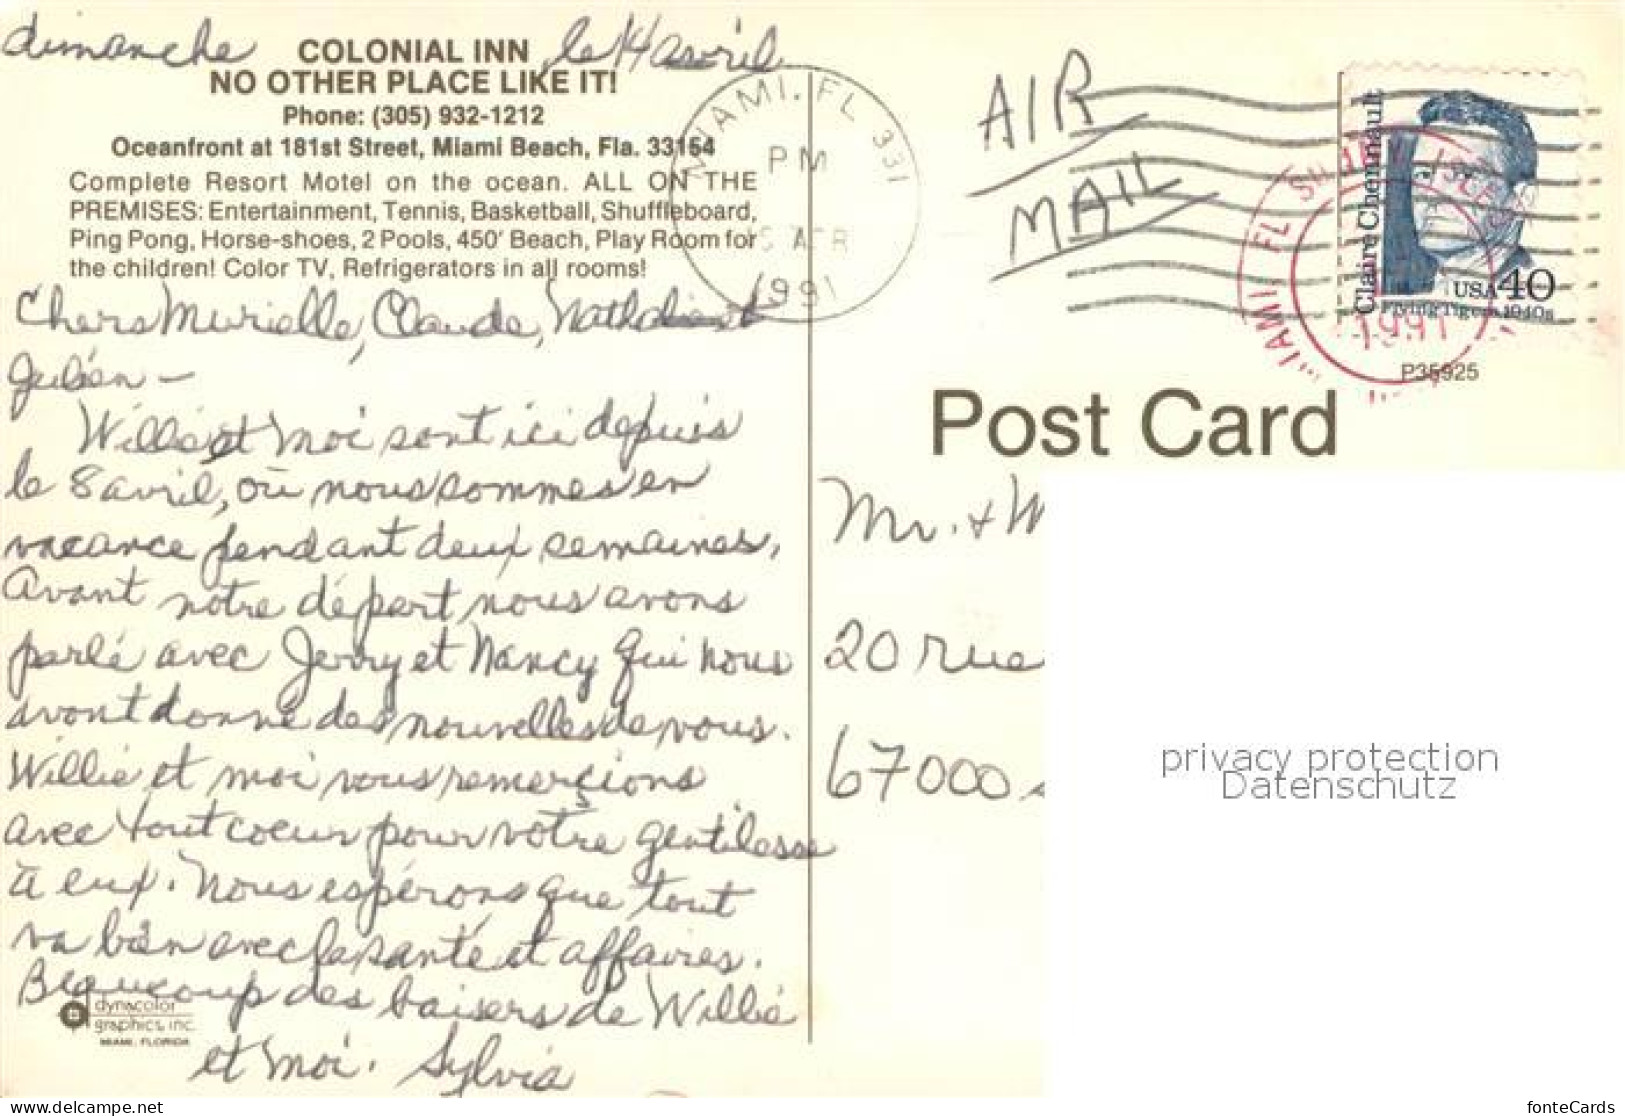 dimanche le 14 avril
COLONIAL INN
NO OTHER PLACE LIKE IT!
Phone: (305) 932-1212
Oceanfront at 181st Street, Miami Beach, Fla. 33154
Complete Resort Motel on the ocean. ALL ON THE
PREMISES: Entertainment, Tennis, Basketball, Shuffleboard,
Ping Pong, Horse-shoes, 2 Pools, 450' Beach, Play Room for
the children! Color TV, Refrigerators in all rooms!
Chers Murielle, Claude, Nathalie et
Julien –
Willie et moi sont ici depuis
le 8 avril, où nous sommes en
vacance pendant deux semaines.
Avant notre départ nous avons
parlé avec Jerry et Nancy qui nous
avont donné des nouvelles de vous.
Willie et moi vous remerçions
avec tout coeur pour votre gentilesse
à eux. Nous espérons que tout
va bien avec la santé et affaires.
Beaucoup des baisers de Willie
et moi. Sylvia
dynacolor
graphics, inc.
MIAMI, FLORIDA
MIAMI, FL 331
PM
15 APR
1991
AIR
MAIL
Claire Chennault
USA 40
Flying Tigers, 1940s
MIAMI, FL
1991
P35925
Post Card
Mr. + M
20 rue
67000
privacy protection
Datenschutz
www.delcampe.net
fonteCards